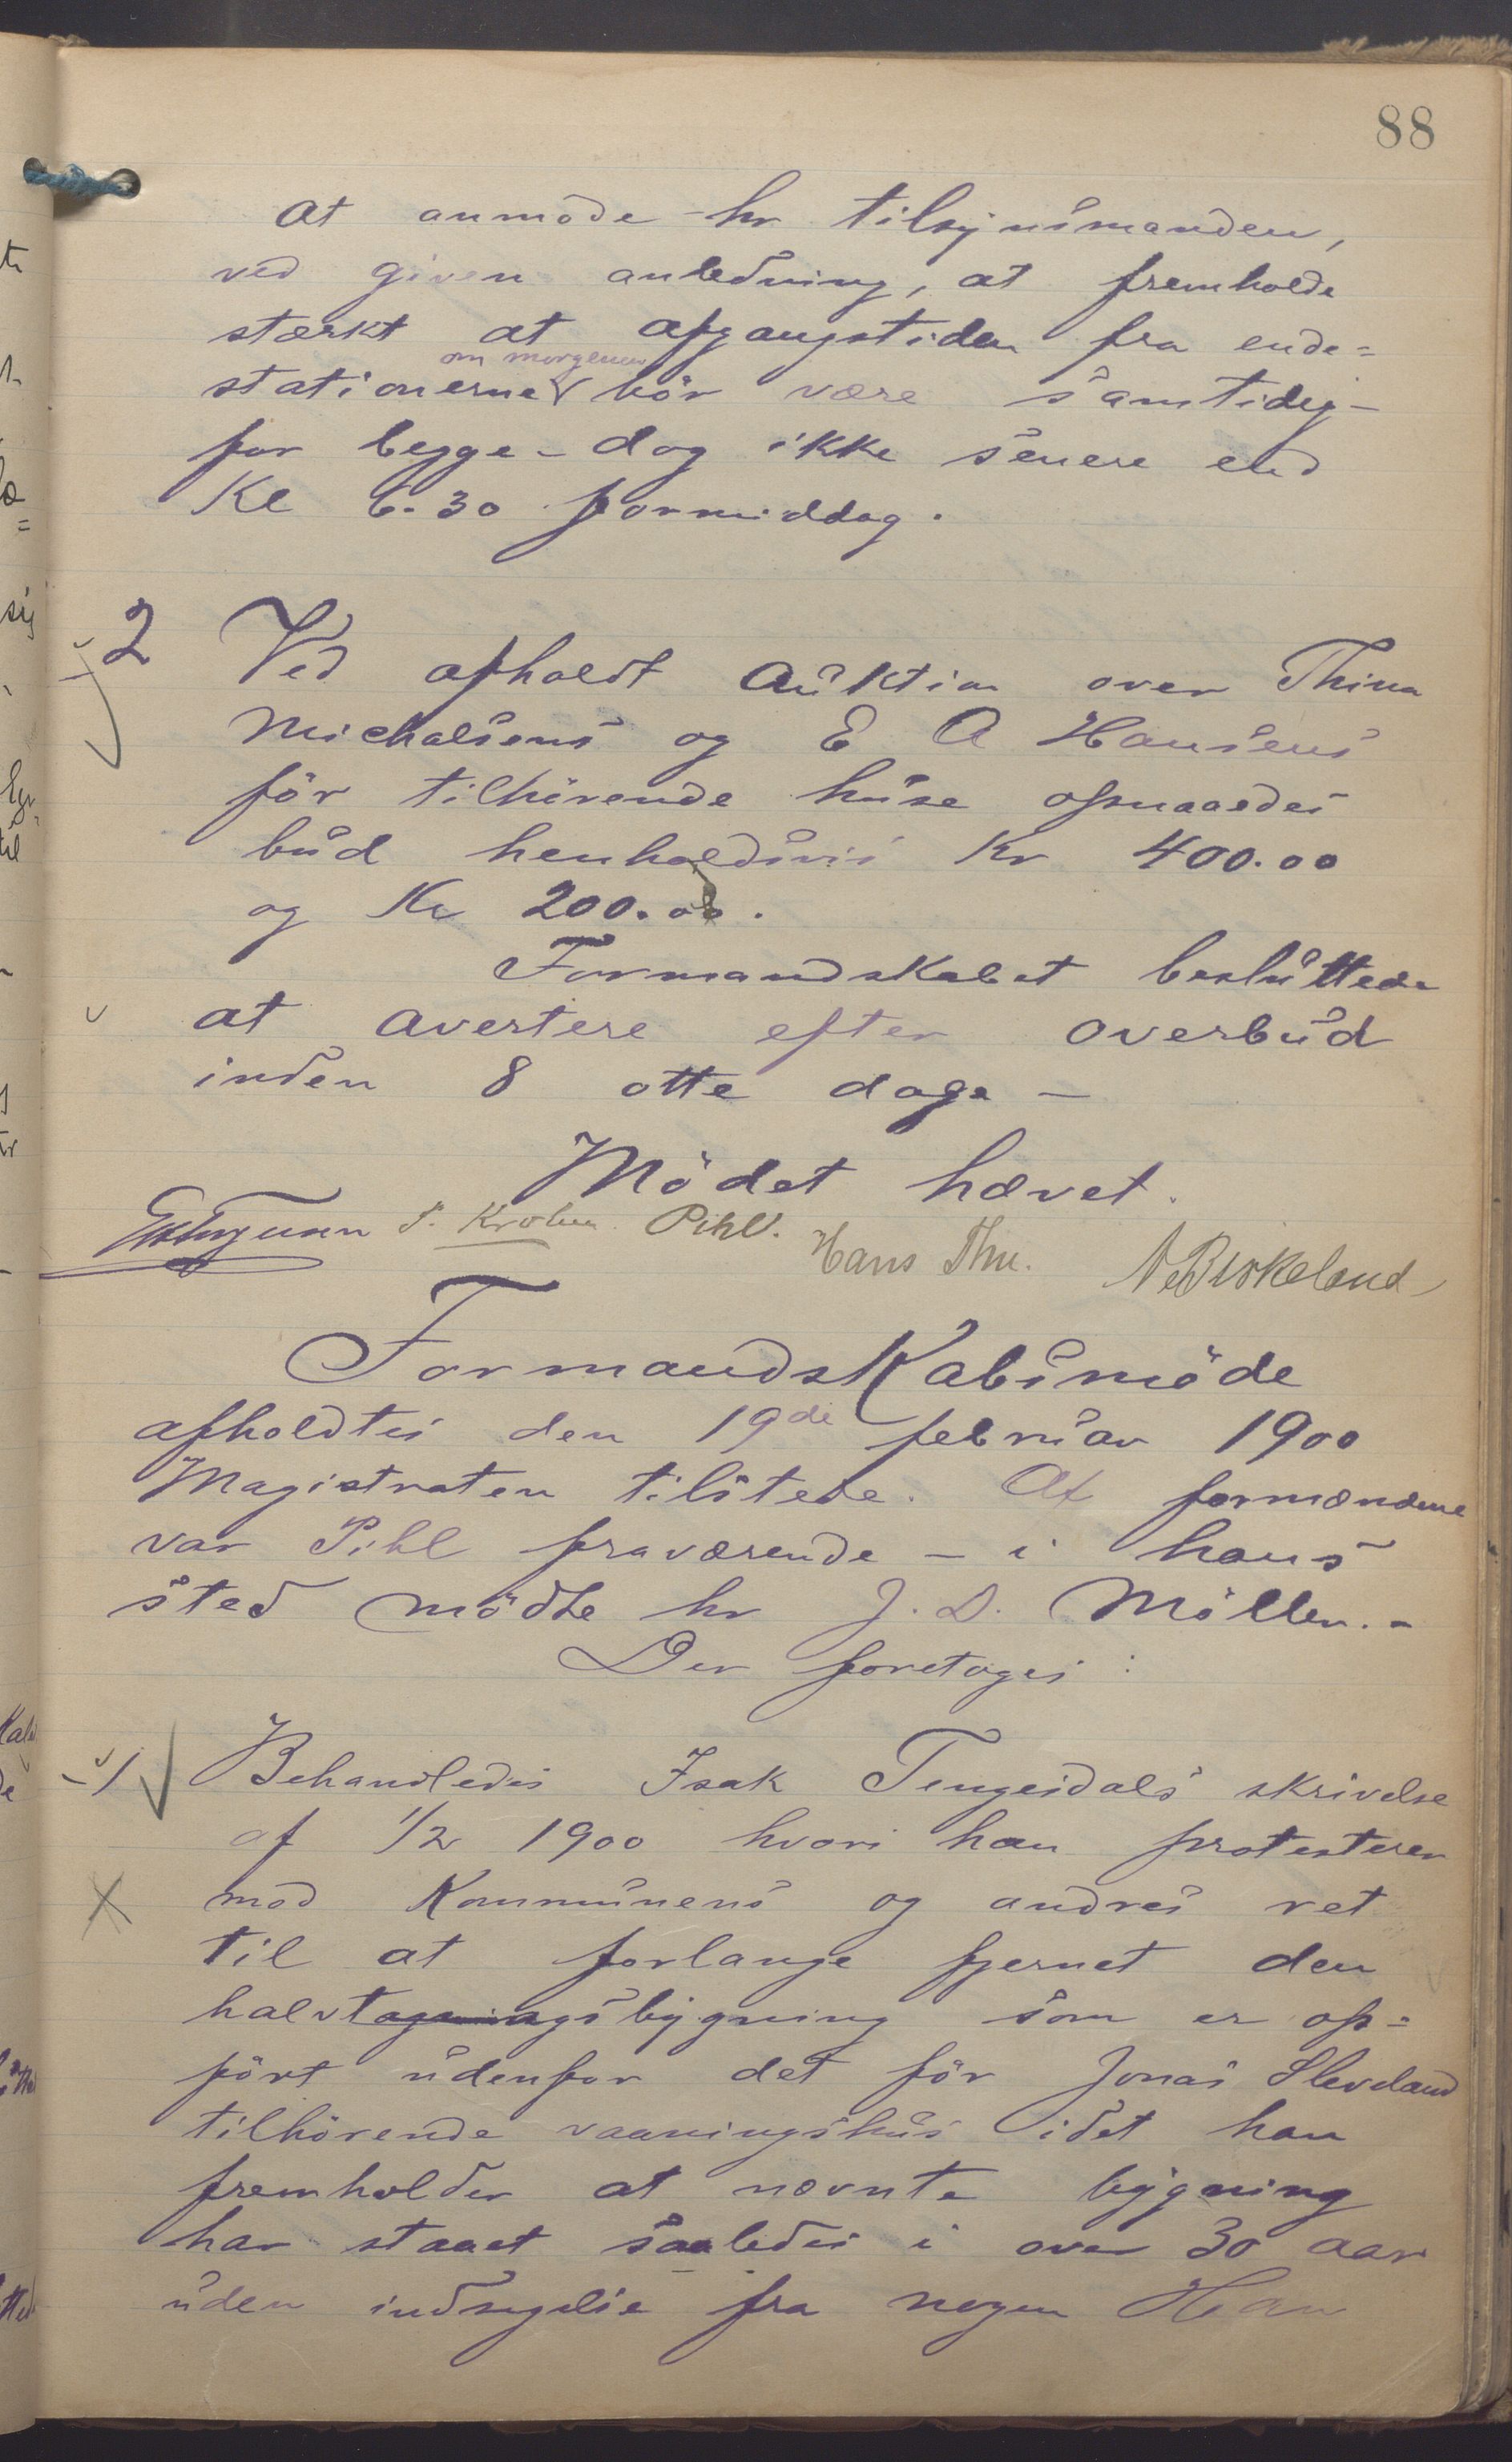 88
at anmode hr tilsynsmanden,
ved given anledning, at fremholde
stærkt at afgangstiden fra ende=
om morgenen
stationerne bör være samtidig -
for begge - dog ikke senere end
Kl 6.30 formiddag.
2 Ved afholdt auktion over Thina
Michalsens og E A Hansens
för tilhörende huse opnaaedes
bud henholdsvis Kr 400.00
og Kr 200.00.
Formandskabet besluttede
at avertere efter overbud
inden 8 otte dage -
Mödet hævet.
Pihl. Hans Thu. Birkeland
Formandskabsmöde
afholdtes den 19de februar 1900
Magistraten tilstede. Af formændene
var Pihl fraværende - i hans
sted mödte hr J. D. Möller. -
Der foretoges:
1 Behandledes Isak Tengesdals skrivelse
af 1/2 1900 hvori han protesterer
mod Kommunens og andres ret
til at forlange fjernet den
halvtagningsbygning som er op=
fört udenfor det för Jonas Sleveland
tilhörende vaaningshus idet han
fremholder at nævnte bygning
har staaet saaledes i over 30 aar
uden indsigelse fra nogen Han